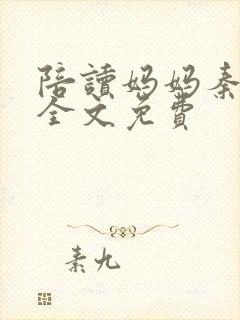 陪讀媽媽秦
全文免費
素九